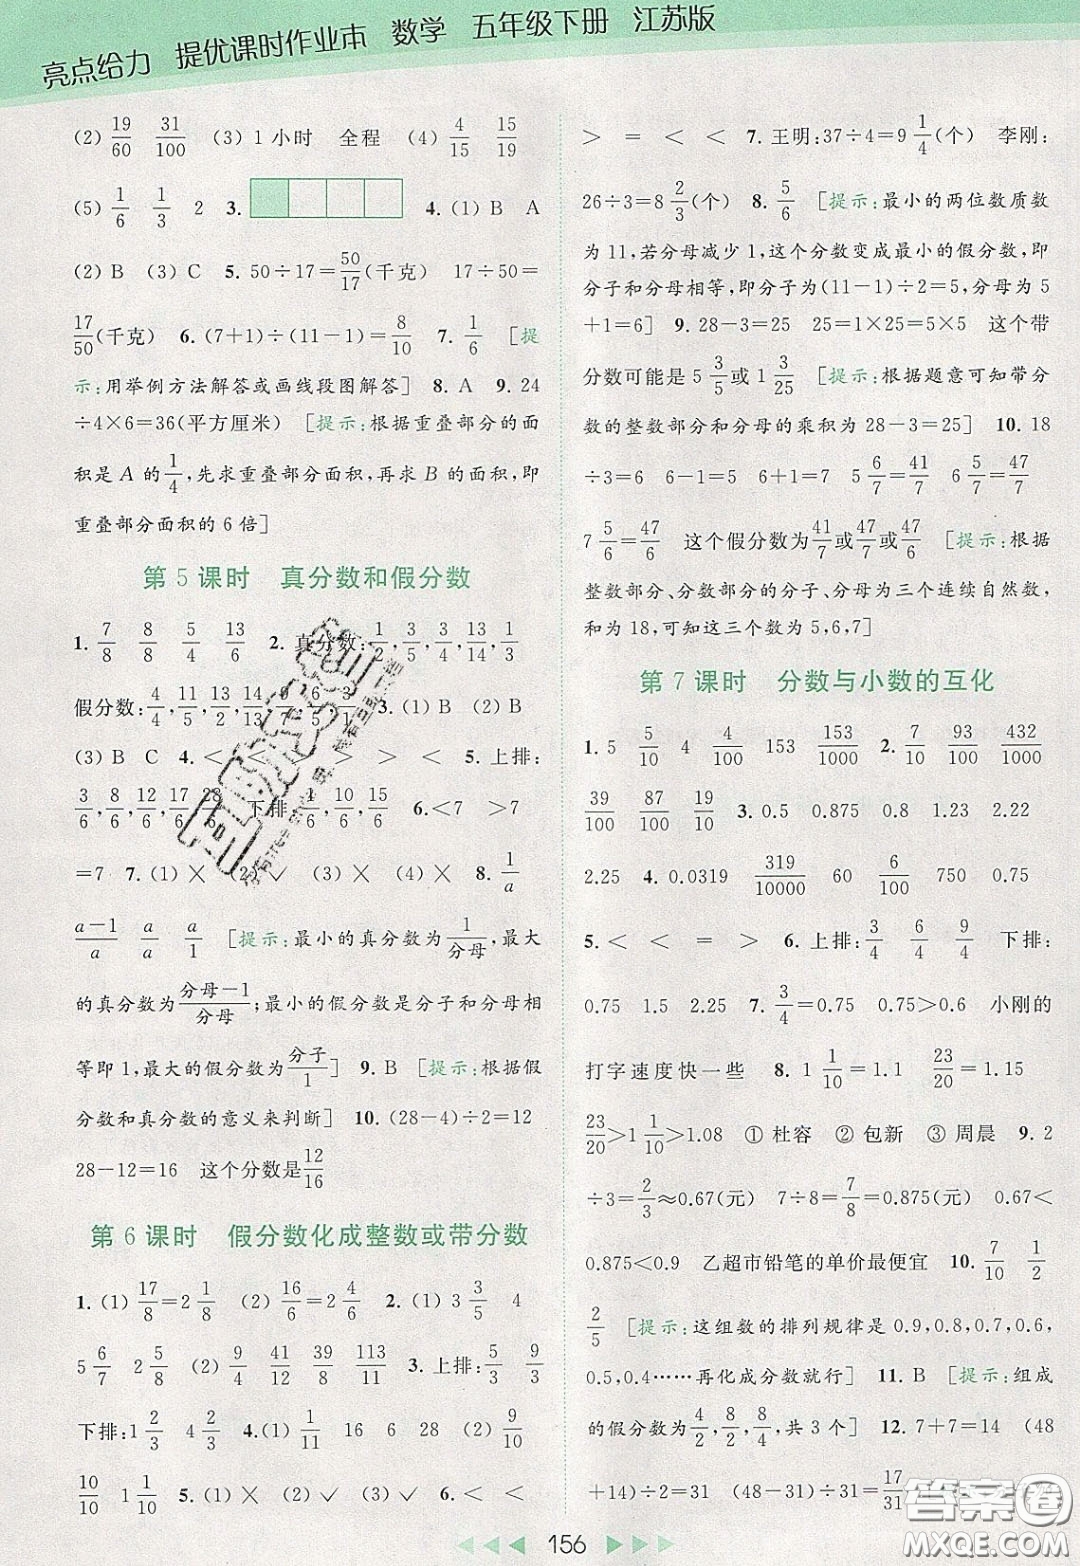 亮点给力 提优课时作业本 数学 五年级下册 江苏版
(2) 19/60 31/100 (3) 1小时 全程 (4) 4/15 15/19
(5) 1/6 1/3 2 3. 4. (1) B A
(2) B (3) C 5. 50÷17=50/17(千克) 17÷50=
17/50(千克) 6. (7+1)÷(11-1)=8/10 7. 1/6 [提
示:用举例方法解答或画线段图解答] 8. A 9. 24
÷4×6=36(平方厘米) [提示:根据重叠部分的面
积是A的1/4,先求重叠部分面积,再求B的面积,即
重叠部分面积的6倍]
第5课时 真分数和假分数
1. 7/8 8/8 5/4 13/6 2. 真分数:1/2,3/5,3/4,13/14,1/3
假分数:4/4,11/5,14/13,9/7,6/5,3/1 3. (1) B (2) B
(3) B C 4. < < > > < < 5. 上排:
3/6,8/6,12/6,17/6, 下排: /6,10/6,15/6 6. <7 >7
=7 7. (1) × (2) ✓ (3) × (4) × 8. 1/a
a-1/a a/a a/1 [提示:最小的真分数为1/分母,最大
的真分数为分母-1/分母;最小的假分数是分子和分母相
等即1,最大的假分数为分子/1] 9. B [提示:根据假
分数和真分数的意义来判断] 10. (28-4)÷2=12
28-12=16 这个分数是12/16
第6课时 假分数化成整数或带分数
1. (1) 17/8=2 1/8 (2) 16/6=2 4/6 2. (1) 3 3/5 4
5 6/7 2 5/8 (2) 9/4 41/12 39/8 113/11 3. 上排:5/3 9/3
下排:1 2/3 4 2/3 4. (1) 1/11 16 6 28 (2) 9/10
10/10 1 1/10 5. (1) × (2) ✓ (3) ✓ 6. < <
> = < < 7. 王明:37÷4=9 1/4(个) 李刚:
26÷3=8 2/3(个) 8. 5/6 [提示:最小的两位数质数
为11,若分母减少1,这个分数变成最小的假分数,即
分子和分母相等,即分子为(11-1)÷2=5,分母为5
+1=6] 9. 28-3=25 25=1×25=5×5 这个带
分数可能是5 3/5或1 3/25 [提示:根据题意可知带分
数的整数部分和分母的乘积为28-3=25] 10. 18
÷3=6 6-1=5 6+1=7 5 6/7=41/7 6 5/7=47/7
7 5/6=47/6 这个假分数为41/7或47/7或47/6 [提示:根据
整数部分、分数部分的分子、分母为三个连续自然数,
和为18,可知这三个数为5,6,7]
第7课时 分数与小数的互化
1. 5 5/10 4 4/100 153 153/1000 2. 7/10 93/100 432/1000
39/100 87/100 19/10 3. 0.5 0.875 0.8 1.23 2.22
2.25 4. 0.0319 319/10000 60 6/100 750 0.75
5. < < = > 6. 上排:3/4 6/4 9/4 下排:
0.75 1.5 2.25 7. 3/4=0.75 0.75>0.6 小刚的
打字速度快一些 8. 1 1/10=1.1 23/20=1.15
23/20>1 1/10>1.08 ① 杜容 ② 包新 ③ 周晨 9. 2
÷3=2/3≈0.67(元) 7÷8=7/8=0.875(元) 0.67<
0.875<0.9 乙超市铅笔的单价最便宜 10. 7/10 1/2
2/5 [提示:这组数的排列规律是0.9,0.8,0.7,0.6,
0.5,0.4……再化成分数就行] 11. B [提示:组成
的假分数为4/2,8/2,8/4,共3个] 12. 7+7=14 (48
+14)÷2=31 (48-31)÷31=17/31
156
答案圈
MXQE.COM